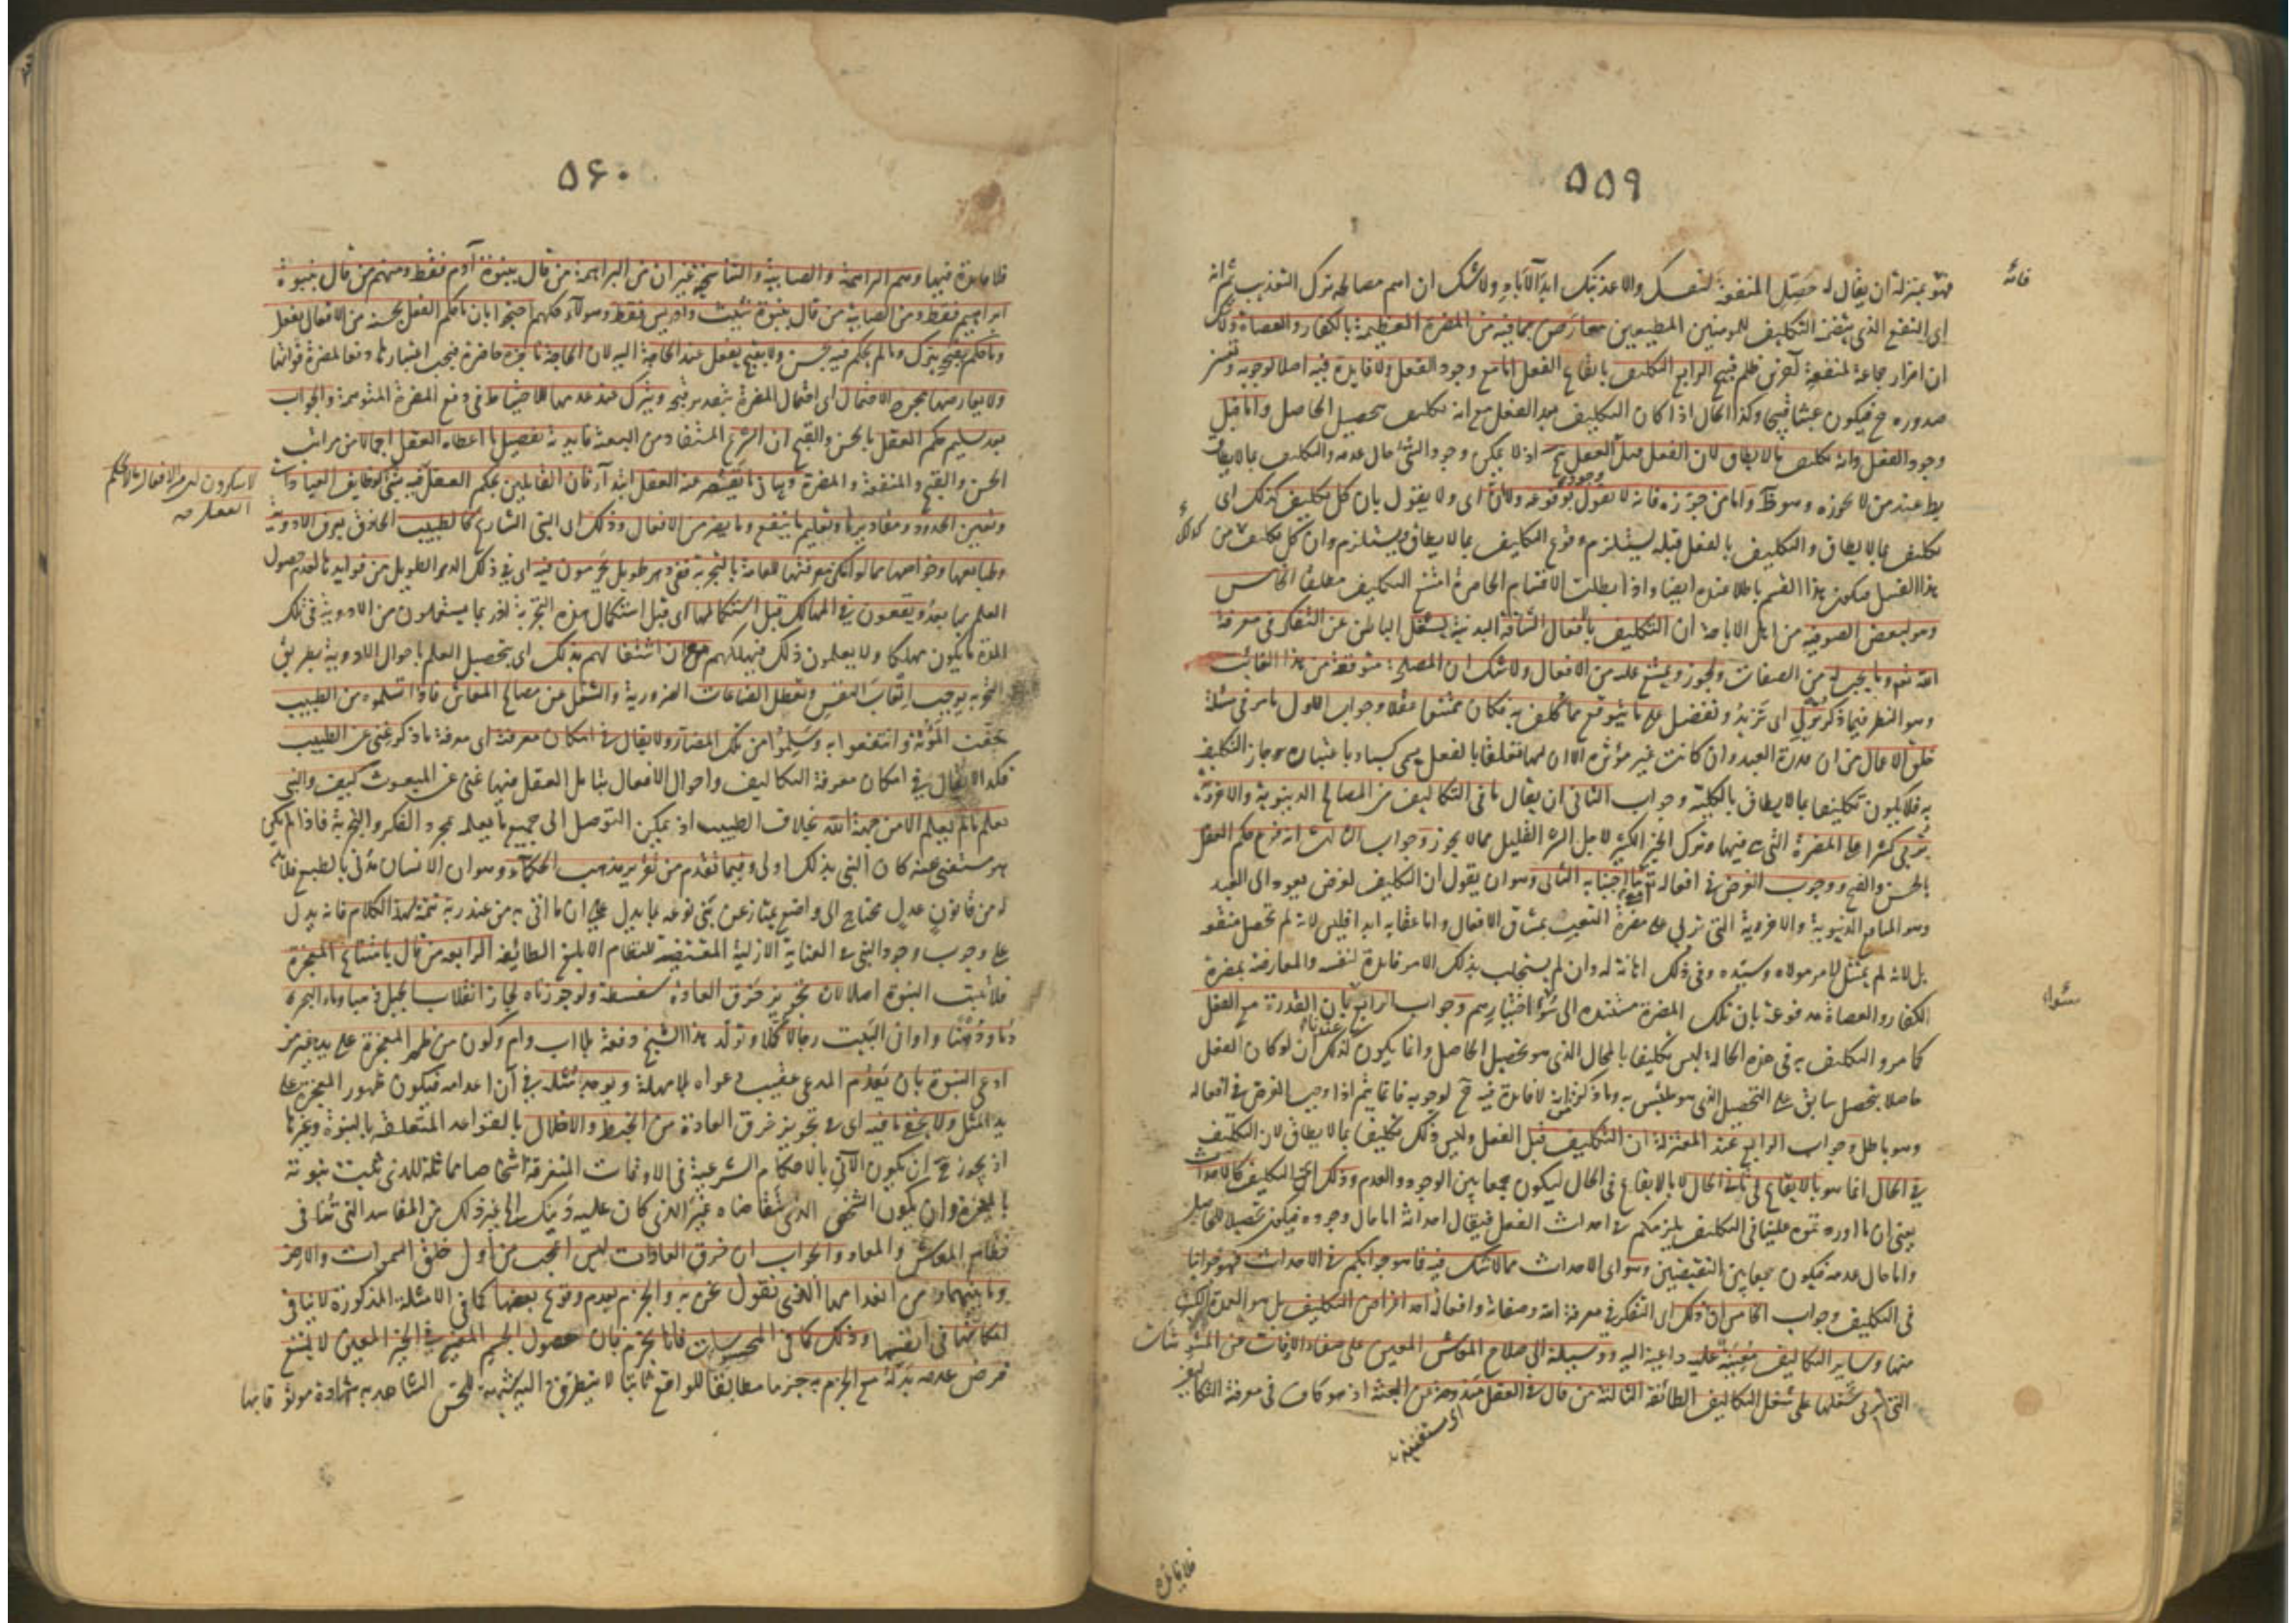 ٥٥٩
فهو بمنزلة ان يقال له حصّل المنفعة لنفسك والا عذبتك ابد الآباد ولا شك ان اسم مصالحه ترك التعذيب ثم انه
فانه
اى النفع الذى يتضمنه التكليف للمومنين المطيعين معارض بما فيه من المضرة العظيمة بالكفار والعصاة ولا شك
ان اضرار جماعة لمنفعة آخرين ظلم قبيح الرابع التكليف بايقاع الفعل اما مع وجود الفعل ولا فايدة فيه اصلا لوجوبه وتعين
صدوره ح فيكون عبثا قبيحا وكذا الحال اذا كان التكليف بعد الفعل مع انه تكليف بتحصيل الحاصل واما قبل
وجود الفعل وانه تكليف بما لا يطاق لان الفعل قبل الفعل مح اذ لا يمكن وجود الشئ حال عدمه والتكليف بما لا يطاق
بط عند من لا يجوزه وهو ظ واما من جوزه فانه لا يقول بوقوعه ولان اى ولا يقول بان كل تكليف كذلك اى
تكليف بما لا يطاق والتكليف بالفعل قبله يستلزم وقوع التكليف بما لا يطاق ويستلزم وان كل تكليف من
كذلك
هذا القبيل فيكون هذا القسم باطلا عنده ايضا واذا بطلت الاقسام الحاصرة امتنع التكليف مطلقا الخامس
وهو لبعض الصوفية من اهل الاباحة ان التكليف بالافعال الشاقة البدنية يشغل الباطن عن التفكر فى معرفة
الله تعم وما يجب له من الصفات ويجوز ويمتنع عليه من الافعال ولا شك ان المصلحة المتوقعة من هذا الفائت
وهو النظر فيما ذكر تربى اى تزيد وتفضل على ما يتوقع مما كلف به فكان ممتنعا عقلا وجواب الاول ما مر فى مسئلة
خلق الاعمال من ان قدرة العبد وان كانت غير مؤثره الا ان لها تعلقا بالفعل يسمى كسبا وباعتباره جاز التكليف
به فلا يكون تكليفا بما لا يطاق بالكلية وجواب الثانى ان يقال ما فى التكاليف من المصالح الدنيوية والاخروية
يربى كثيرا على المضرة التى هى فيها وترك الخير الكثير لاجل الشر القليل مما لا يجوز وجواب الثالث انه فرع حكم العقل
بالحسن والقبح ووجوب الغرض فى افعاله تعم الثانى وهو ان يقول ان التكليف لغرض يعود الى العبد
وهو المنافع الدنيوية والاخروية التى تربى على مضرة التعب بمشاق الافعال واما عقابه ابدا فليس لانه لم تحصل منفعة
بل لانه لم يمتثل لامر مولاه وسيده وفى ذلك اهانة له وان لم يستجلب بذلك الامر فايدة لنفسه والمعارضة بمضرة
الكفار والعصاة مدفوعة بان تلك المضرة مستندة الى سوء اختيارهم وجواب الرابع بان القدرة مع الفعل
سواء
كما مر والتكليف به فى هذه الحالة ليس تكليفا بالمحال الذى هو تحصيل الحاصل وانما يكون كذلك ان لو كان الفعل
حاصلا بتحصيل سابق على التحصيل الذى هو ملتبس به وما ذكر من انه لا فايدة فيه ح لوجوبه فانما يتم اذا وجب الغرض فى افعاله
وهو باطل وجواب الرابع عند المعتزلة ان التكليف قبل الفعل وليس ذلك تكليفا بما لا يطاق لان التكليف
فى الحال انما هو بالايقاع فى ثانى الحال لا بالايقاع فى الحال ليكون جمعا بين الوجود والعدم وذلك اى التكليف كالاحداث
يعنى ان ما اورده تموه علينا فى التكليف يلزمكم فى احداث الفعل فيقال احداثه اما حال وجوده فيكون تحصيلا للحاصل
واما حال عدمه فيكون جمعا بين النقيضين وهو اى الاحداث مما لا شك فيه فما هو جوابكم فى الاحداث فهو جوابنا
فى التكليف وجواب الخامس ان ذلك اى التفكر فى معرفة الله وصفاته وافعاله احد اغراض التكليف بل هو العمدة الكبرى
منها وساير التكاليف معينة عليه داعية اليه ووسيلة الى صلاح المعاش المعين على صفاء الاوقات عن المشوشات
التى تربى شغلها على شغل التكاليف الطائفة الثالثة من قال فى العقل مندوحة عن البعثة اذ هو كاف فى معرفة التكاليف
اى مستغنية
فلا فايدة
٥٦٠
فلا فايدة فيها وهم البراهمة والصابية والتناسخية غير ان من البراهمة من قال بنبوة آدم فقط ومنهم من قال بنبوة
ابراهيم فقط ومن الصابية من قال بنبوة شيث وادريس فقط وهولآء كلهم احتجوا بان ما حكم العقل بحسنه من الافعال يفعل
وما حكم بقبحه يترك وما لم يحكم فيه بحسن ولا بقبح يفعل عند الحاجة اليه لان الحاجة ناجزة حاضرة فيجب اعتبارها دفعا لمضرة فواتها
ولا يعارضها مجرد الاحتمال اى احتمال المضرة بتقدير قبحه ويترك عند عدمها للاحتياط فى دفع المضرة المتوهمة والجواب
بعد تسليم حكم العقل بالحسن والقبح ان الشرع المستفاد من البعثة فايدته تفصيل ما اعطاه العقل اجمالا من مراتب
الحسن والقبح والمنفعة والمضرة وبيان ما يقصر عنه العقل ابتدآ فان القايلين بحكم العقل فيه شئ كوظايف العبادات
لا ينكرون ان من الافعال ما لا يحكم
العقل
وتعيين الحدود ومقاديرها وتعليم ما ينفع وما يضر من الافعال وذلك اى النبى الشارع كالطبيب الحاذق يعرف الادوية
وطبايعها وخواصها مما لو امكن معرفتها للعامة بالتجربة ففى دهر طويل يحرمون فيه اى فى ذلك الدهر الطويل من فوايدها لعدم حصول
العلم بها بعد ويقعون فى المهالك قبل استكمالها اى قبل استكمال هذه التجربة اذ ربما يستعملون من الادوية فى تلك
المدة ما يكون مهلكا ولا يعلمون ذلك فيهلكهم مع ان اشتغالهم بذلك اى بتحصيل العلم باحوال الادوية بطريق
التجربة يوجب اتعاب النفس وتعطل الصناعات الضرورية والشغل عن مصالح المعاش فاذا تسلموه من الطبيب
خفّت المؤنة وانتفعوا به وسلموا من تلك المضار ولا يقال فى امكان معرفته اى معرفة ما ذكر غنى عن الطبيب
فكذا لا يقال فى امكان معرفة التكاليف واحوال الافعال بتامل العقل فيها غنى عن المبعوث كيف والنبى
يعلم ما لم يعلم الا من جهة الله بخلاف الطبيب اذ يمكن التوصل الى جميع ما يعلمه بمجرد الفكر والتجربة فاذا لم يكن
هو مستغنى عنه كان النبى بذلك اولى وفيما تقدم من تقرير مذهب الحكماء وهو ان الانسان مدنى بالطبع فلا بد
له من قانون عدل محتاج الى واضع يمتاز عن بنى نوعه بما يدل على ان ما اتى به من عند ربه تتمة لهذا الكلام فانه يدل
على وجوب وجود النبى فى العناية الازلية المقتضية للنظام الابلغ الطائفة الرابعة من قال بامتناع المعجزة
فلا تثبت النبوة اصلا لان تجويز خرق العادة سفسطة ولو جوزناه لجاز انقلاب الجبل ذهبا وماء البحر
دما ودهنا واوانى البيت رجالا كملا وتولد هذا الشيخ دفعة بلا اب وام وكون من ظهر المعجزة على يده غير من
ادعى النبوة بان يعدم المدعى عقيب دعواه بلا مهلة ويوجد مثله فى آن اعدامه فيكون ظهور المعجزة على
يد المثل ولا يخفى ما فيه اى فى تجويز خرق العادة من الخبط والاخلال بالقواعد المتعلقة بالنبوة وغيرها
اذ يجوز ح ان يكون الآتى بالاحكام الشرعية فى الاوقات المتفرقة اشخاصا مماثلة للذى ثبتت نبوته
بالمعجزة وان يكون الشخص الذى تتقاضاه غير الذى كان عليه دينك الى غير ذلك من المفاسد التى تنافى
نظام المعاش والمعاد والجواب ان خرق العادات ليس اعجب من اول خلق السموات والارض
وما بينهما ومن انعدامها الذى نقول نحن به والجزم بعدم وقوع بعضها كما فى الامثلة المذكورة لا ينافى
امكانها فى انفسها وذلك كما فى المحسوسات فانا نجزم بان حصول الجسم المعين فى الحيز المعين لا يمتنع
فرض عدمه بدله مع الجزم به جزما مطابقا للواقع ثابتا لا يتطرق اليه شبهة للحس الشاهد به شهادة موثوقا بها